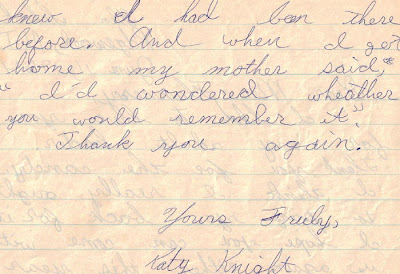 knew I had been there
before. And when I got
home my mother said,
"I'd wondered wheather
you would remember it".
Thank you again.
Yours Truly,
Katy Knight